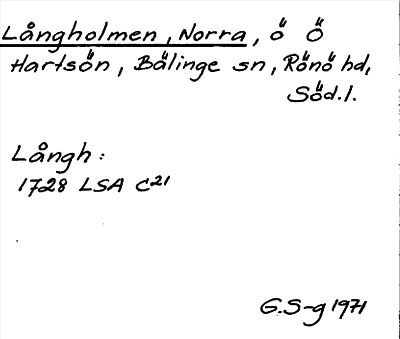 Långholmen, Norra, ö Ö
Hartsön, Bälinge sn, Rönö hd,
Söd.l.
Långh:
1728 LSA C21
G.S-g 1971